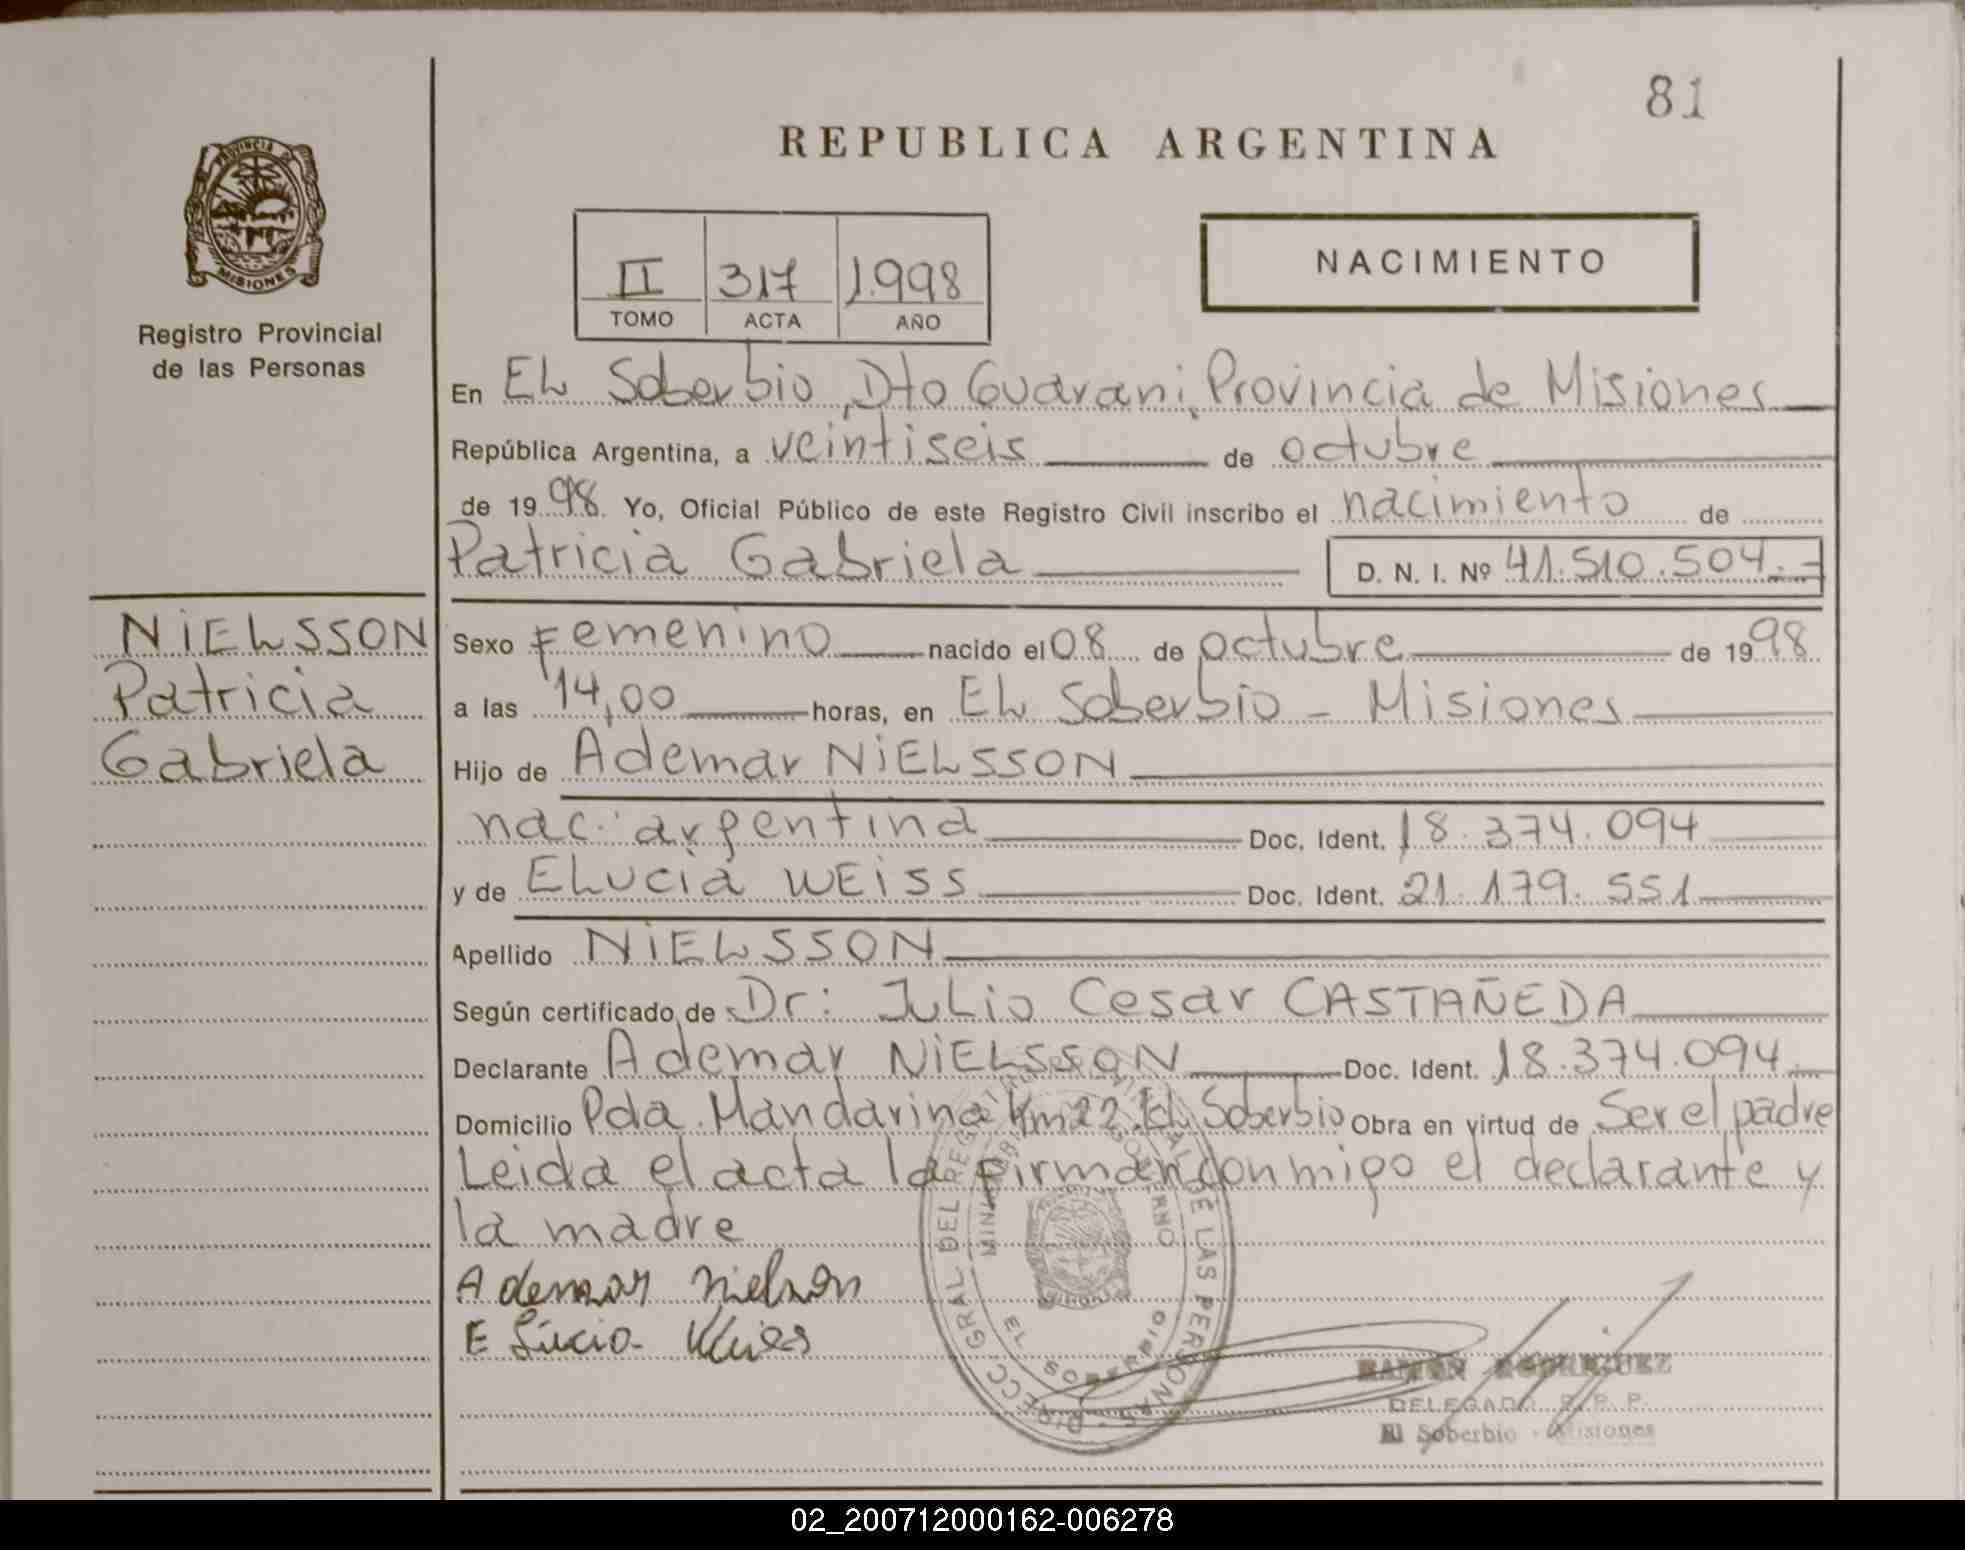 81
REPUBLICA ARGENTINA
PROVINCIA DE
MISIONES
Registro Provincial
de las Personas
II 317 1.998
TOMO ACTA AÑO
NACIMIENTO
En EL Soberbio, Dto Guarani, Provincia de Misiones
República Argentina, a veintiseis de octubre
de 1998. Yo, Oficial Público de este Registro Civil inscribo el nacimiento de
Patricia Gabriela D. N. I. Nº 41.510.504.-
NiELSSON
Patricia
Gabriela
Sexo Femenino nacido el 08 de octubre de 1998
a las 14,00 horas, en EL Soberbio - Misiones
Hijo de Ademar NiELSSON
nac. argentina Doc. Ident. 18.374.094
y de ELucia WEiSS Doc. Ident. 21.179.551
Apellido NiELSSON
Según certificado de Dr: Julio Cesar CASTAÑEDA
Declarante Ademar NiELSSON Doc. Ident. 18.374.094.
Domicilio Pda. Mandarina Km 22. EL Soberbio Obra en virtud de Ser el padre
Leida el acta la firman conmigo el declarante y
la madre
Ademar Nielson
E Lucia
DIRECC GRAL DEL REG DE LAS PERSONAS
EL SOBERBIO
RAMON RODRIGUEZ
DELEGADO R. P. P.
El Soberbio - Misiones
02_200712000162-006278